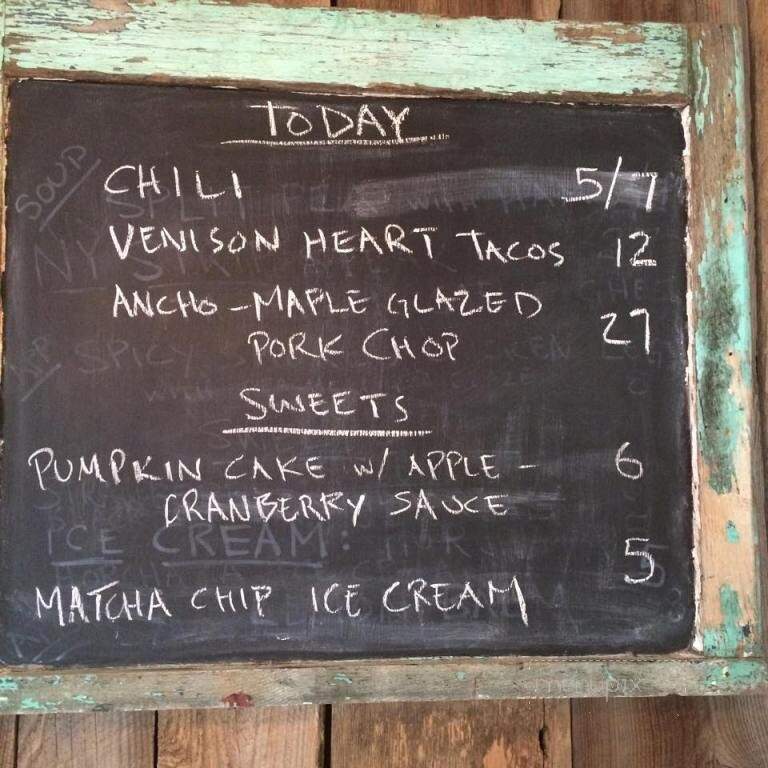 TODAY
CHILI 5/7
VENISON HEART TACOS 12
ANCHO-MAPLE GLAZED
PORK CHOP 27
SWEETS
PUMPKIN CAKE W/ APPLE- 6
CRANBERRY SAUCE
5
MATCHA CHIP ICE CREAM
SOUP
ICE CREAM: